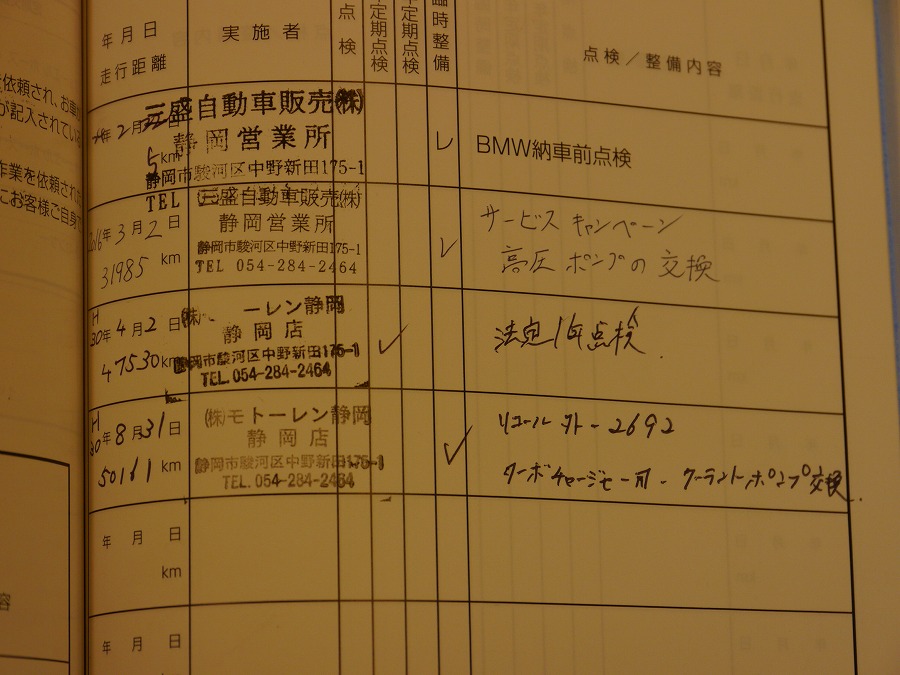 を依頼され、お車が
が記入されている
作業を依頼された
にお客様ご自身で
年月日
走行距離
実施者
点検
定期点検
定期点検
臨時整備
点検／整備内容
年 2 月 日
5 km
三盛自動車販売㈱
静岡営業所
静岡市駿河区中野新田175-1
TEL
BMW納車前点検
2016年 3 月 2 日
31985 km
三盛自動車販売㈱
静岡営業所
静岡市駿河区中野新田175-1
TEL 054-284-2464
サービス キャンペーン
高圧 ポンプの 交換
H
30年 4 月 2 日
47530 km
㈱ ーレン静岡
静岡店
静岡市駿河区中野新田175-1
TEL.054-284-2464
法定1年点検
H
30年 8 月 31 日
50161 km
㈱モトーレン静岡
静岡店
静岡市駿河区中野新田175-1
TEL.054-284-2464
リコール 外-2692
ターボチャージャー用 クーラントポンプ交換
年 月 日
km
年 月 日
容